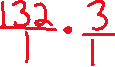 132/1 · 3/1